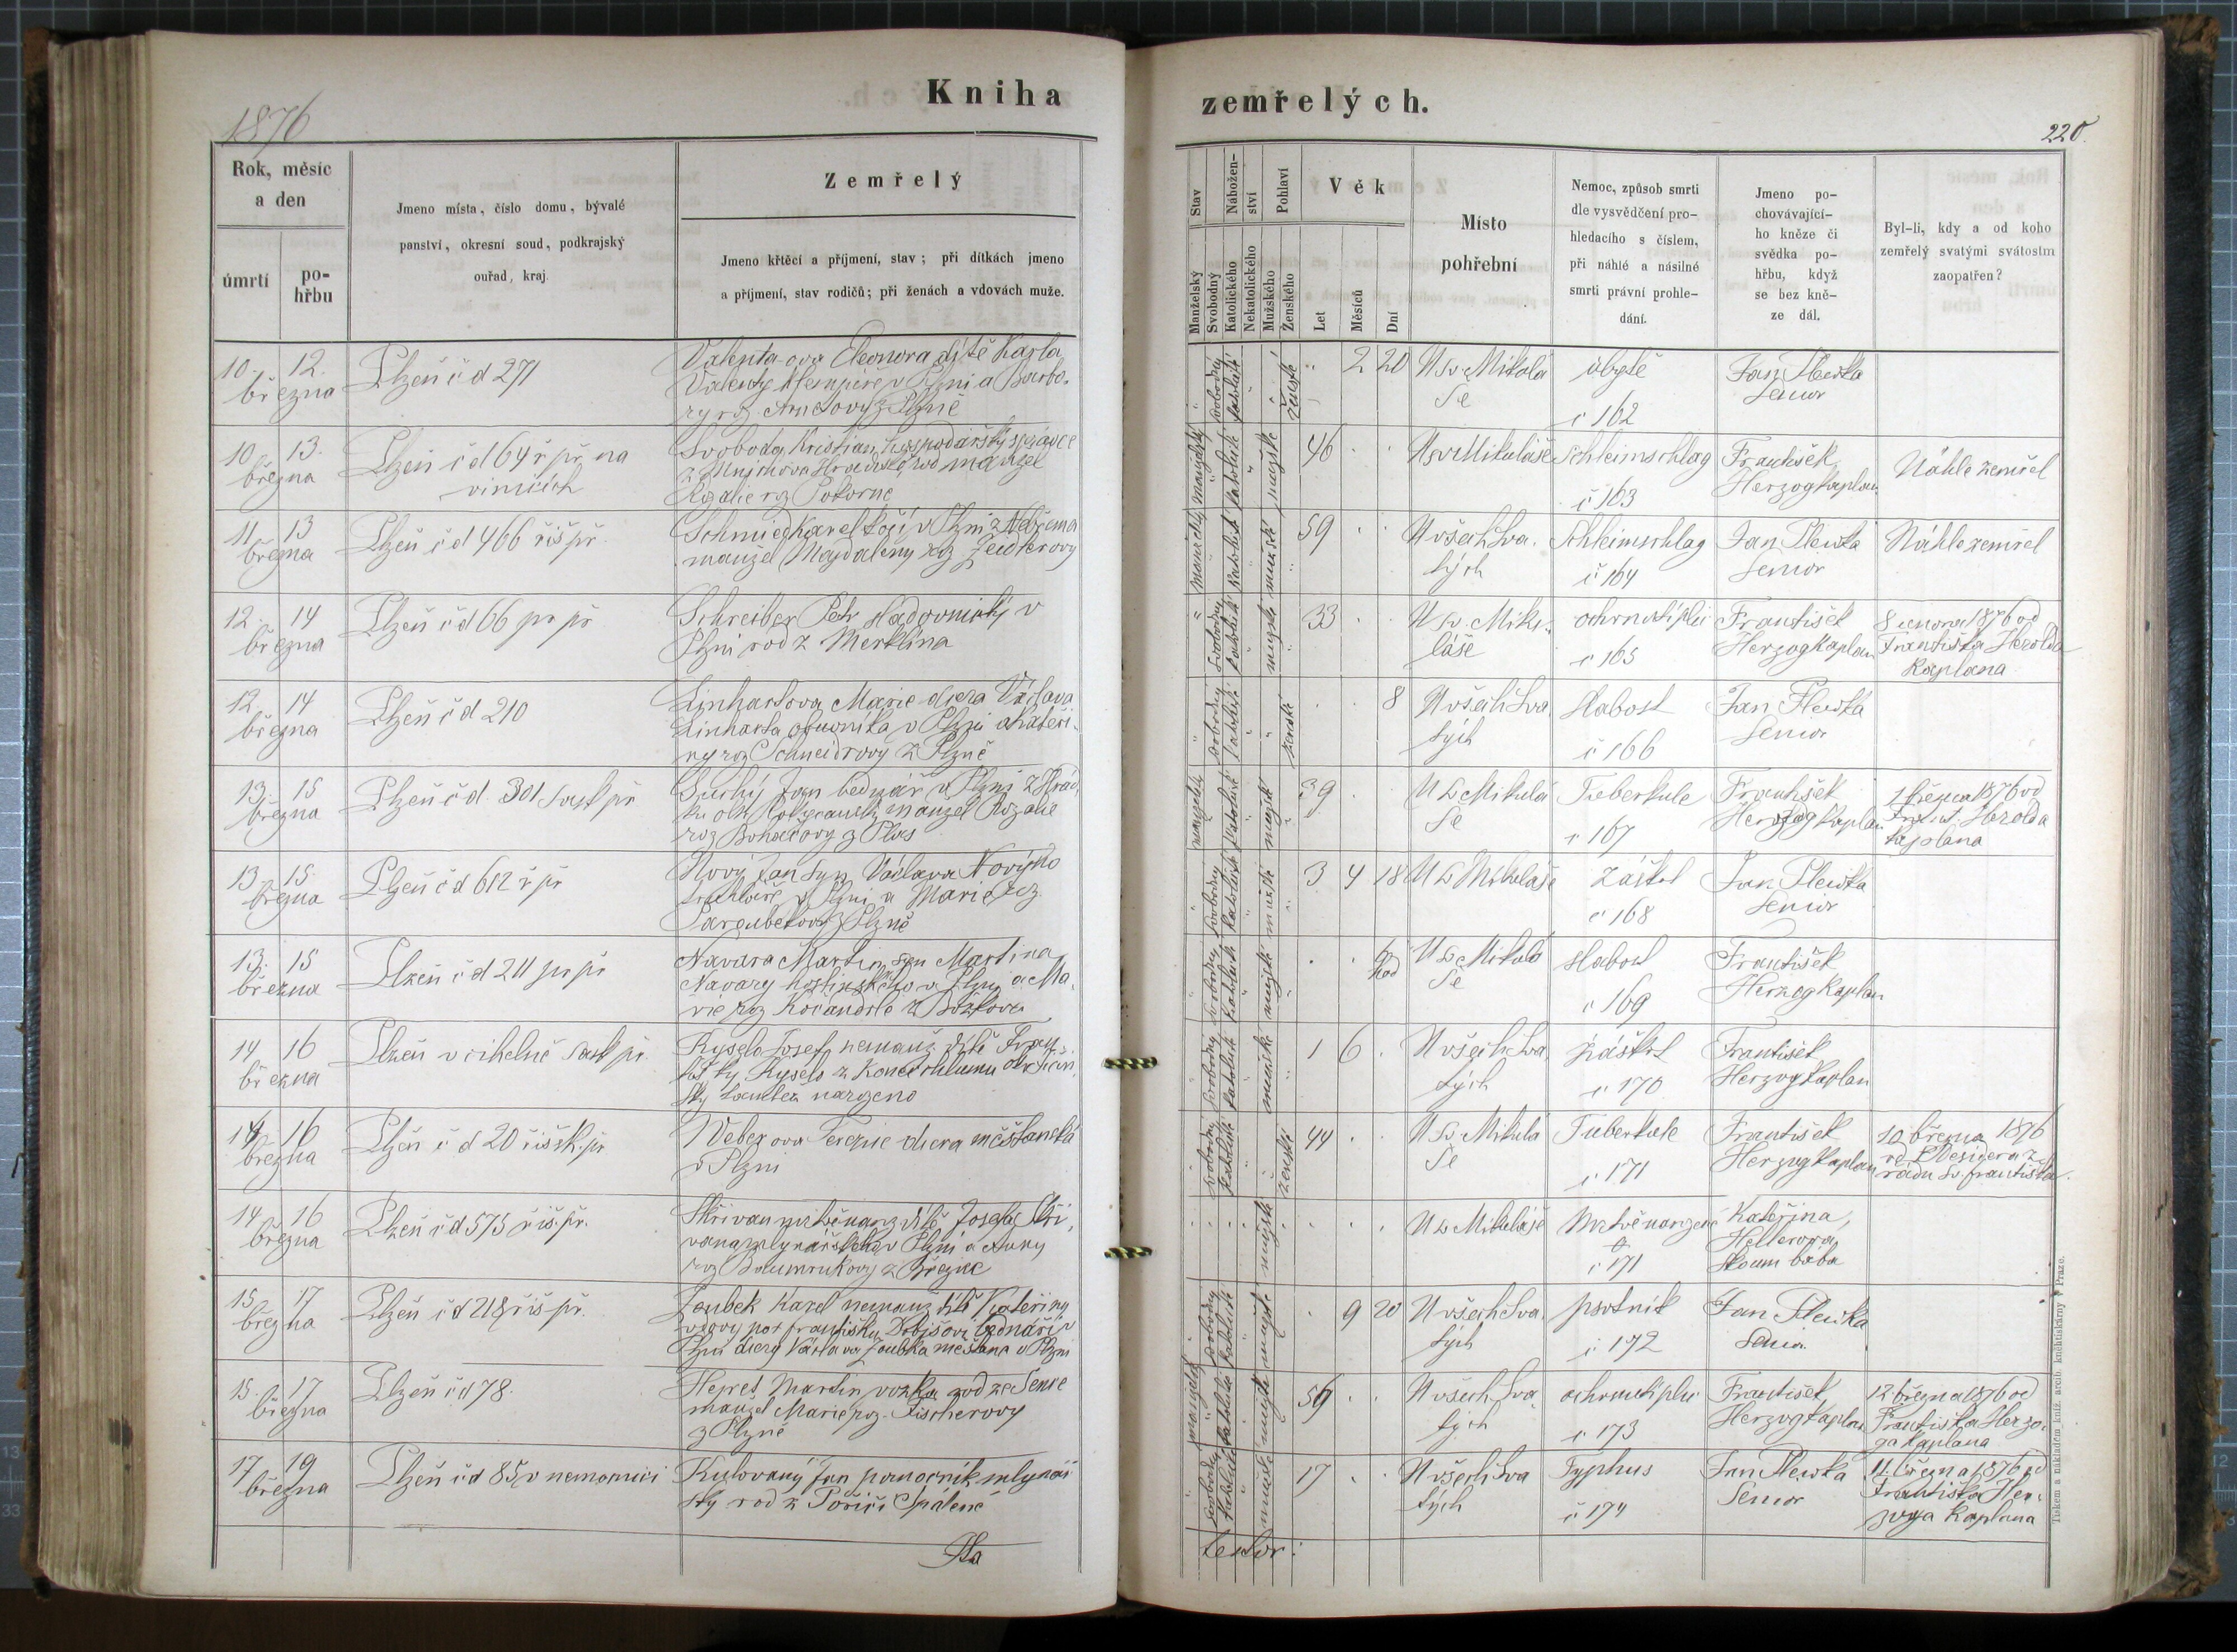 1876
Kniha
zemřelých.
220
Rok, měsíc
a den
úmrtí
po-
hřbu
Jmeno místa, číslo domu, bývalé
panství, okresní soud, podkrajský
ouřad, kraj.
Zemřelý
Jmeno křtěcí a příjmení, stav; při dítkách jmeno
a příjmení, stav rodičů; při ženách a vdovách muže.
Stav
Manželský
Svobodný
Nábožen-
ství
Katolického
Nekatolického
Pohlaví
Mužského
Ženského
Věk
Let
Měsíců
Dní
Místo
pohřební
Nemoc, způsob smrti
dle vysvědčení pro-
hledacího s číslem,
při náhlé a násilné
smrti právní prohle-
dání.
Jmeno po-
chovávající-
ho kněze či
svědka po-
hřbu, když
se bez kně-
ze dál.
Byl-li, kdy a od koho
zemřelý svatými svátostm
zaopatřen?
10. 12.
března
Plzeň č d 271
Valenta-ova Eleonora dítě Karla
Valenty klempíře v Plzni a Barbo-
ry roz z Plzně
svobodný katolické ženské
2 20
U Sv Mikulá
še
č 162
Jan Plewka
Senior
10. 13.
března
Plzeň č d 64 ř př na
vinicích
Svoboda Kristian hospodářský správce
z Mnichova Hradiště rod manžel
Rozalie roz Pokorné
manželský katolické mužské
46
U sv Mikuláše
Schleimschlag
č 163
František
Herzog kaplan
Náhle zemřel
11 13
března
Plzeň č d 466 říš př
Schmied Karel kočí v Plzni z
manžel Magdaleny roz
manželský katolické mužské
59
U všech Sva-
tých
Schleimschlag
č 164
Jan Plewka
Senior
Náhle zemřel
12. 14
března
Plzeň č d 66 pr př
Schreiber Petr v
Plzni rod z Merklína
svobodný katolické mužské
33
U Sv. Miku-
láše
č 165
František
Herzog kaplan
8 února 1876 od
Františka Herolda
Kaplana
12 14
března
Plzeň č d 210
Linhartova Marie dcera Václava
Linharta obuvníka v Plzni a Kateři-
ny roz Schneidrovy z Plzně
svobodný katolické ženské
8
U všech Sva
tých
slabost
č 166
Jan Plewka
Senior
13. 15
března
Plzeň č d 301 Sask př
Suchý Jan bednář v Plzni z Hrád-
ku okr Rokycanský manžel Rozalie
roz z Plas
manželský katolické mužské
39
U Sv Mikulá
še
Tuberkule
č 167
František
Herzog kaplan
1 března 1876 od
Herolda
Kaplana
13. 15.
března
Plzeň č d 612 ř př
Nový Jan syn Václava Novýho
truhláře v Plzni a Marie roz
z Plzně
svobodný katolické mužské
3 4 18
U Sv Mikuláše
záškrt
č 168
Jan Plewka
Senior
13. 15
března
Plzeň č d 211 pr př
Navara Martin syn Martina
Navary hostinského v Plzni a Ma-
rie roz Kočandrle z Božkova
svobodný katolické mužské
6
hod
U Sv Mikulá
še
slabost
č 169
František
Herzog kaplan
14 16
března
Plzeň v cihelně Sask př.
Kyselo Josef nemanž dítě Fran-
tišky Kyselo z
narozeno
svobodný katolické mužské
1 6
U všech Sva
tých
záškrt
č 170
František
Herzog kaplan
14 16
března
Plzeň č d 20 říšsk. př
Weberova Terezie dcera měšťanská
v Plzni
svobodný katolické ženské
44
U Sv Mikulá
še
Tuberkule
č 171
František
Herzog kaplan
10. března 1876
od P Desidera z
řádu Sv. Františka
14 16
března
Plzeň č d 575 říš. př.
Skřivan mrtvěnarz dítě Josefa Skři-
vana mlynářského v Plzni a Anny
roz Baumrukovy z
mužské
U Sv Mikuláše
Mrtvěnarzené
č 171
Kateřina
Hellerova
zkoum bába
15 17
března
Plzeň č d 218 říš př.
Joubek Karel nemanž dítě Kateřiny
vdovy po Františku bednáři v
Plzni dcery Václava Joubka měšťana v Plzni
svobodný katolické mužské
9 20
U všech Sva
tých
psotník
č 172
Jan Plewka
Senior
15. 17
března
Plzeň č d 78.
Hejret Martin vozka rod ze Senec
manžel Marie roz. Fischerovy
z Plzně
manželský katolické mužské
56
U všech Sva
tých
č 173
František
Herzog kaplan
12 března 1876 od
Františka Herzo-
ga kaplana
17 19
března
Plzeň č d 85 v nemocnici
Kulovaný Jan pomocník mlynář-
ský rod z Poříčí Spálené
svobodný katolické mužské
17
U všech Sva
tých
Typhus
č 174
Jan Plewka
Senior
11. března 1876 od
Františka Her-
zoga Kaplana
Tiskem a nákladem kníž. arcib. knihtiskárny v Praze.